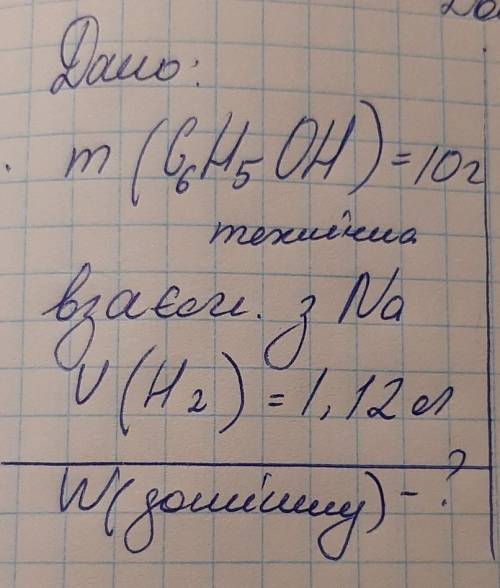 Дано:
m (C₆H₅OH) = 10г
технічна
взаєм. з Na
V (H₂) = 1,12 л
W (домішку) - ?